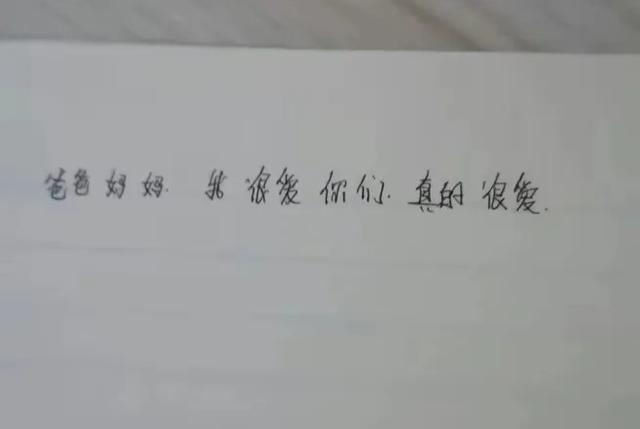 爸爸妈妈.我很爱你们.真的很爱.